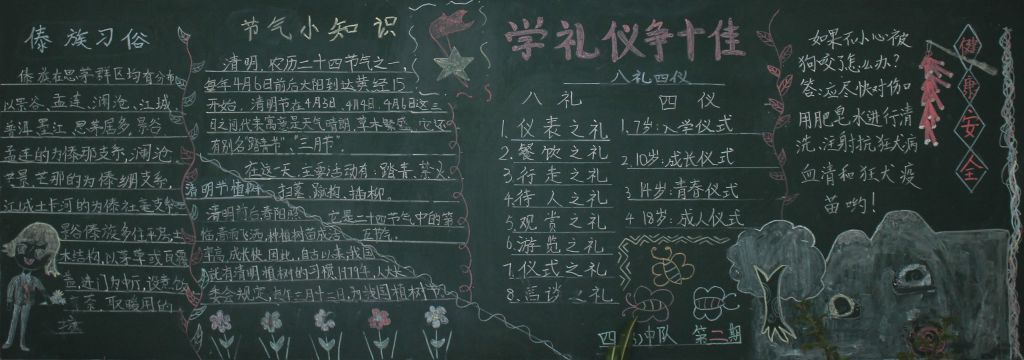 傣族习俗
傣族在思茅群区均有分布
以景谷、孟连、澜沧、江城
普洱、墨江、思茅居多,景谷
孟连的为傣那支系,澜沧
芒那的为傣绷支系,
江城土卡河的为傣
景谷傣族多住平房,土
木结构,以茅草或瓦
盖,进门为
取暖用的
节气小知识
清明,农历二十四节气之一,
每年4月6日前后太阳到达黄经15
开始。清明节在4月3日、4月4日、4月6日这三
日之间代表寓意是天气晴朗,草木繁盛,它还
有别名"踏青节"、"三月节"。
在这天,主要活动有:踏青、禁火、
扫墓、蹴鞠、插柳。
清明节植树
清明前后春阳照
它是二十四节气中的第
临春雨飞洒,种植树苗成活
五个。
率高,成长快,因此,自古以来,我国
就有清明植树的习惯,1979年,人大常
委会规定,每年三月十二日,为我国植树节。
学礼仪争十佳
八礼四仪
八礼
1.仪表之礼
2.餐饮之礼
3.行走之礼
4.待人之礼
5.观赏之礼
6.游览之礼
7.仪式之礼
8.言谈之礼
四仪
1.7岁:入学仪式
2.10岁:成长仪式
3.14岁:青春仪式
4.18岁:成人仪式
四(5)中队 第二期
如果不小心被
狗咬了怎么办?
答:应尽快对伤口
用肥皂水进行清
洗、注射抗狂犬病
血清和狂犬疫
苗哟!
健康安全